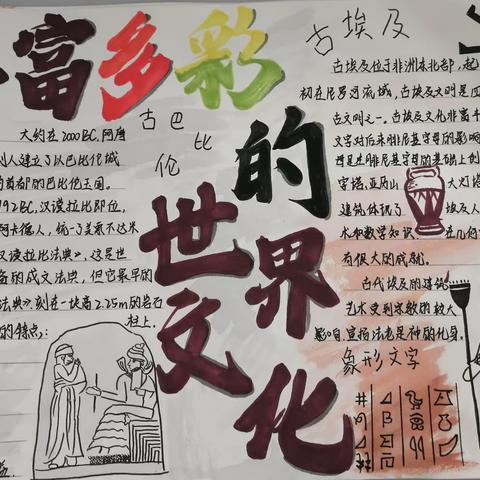 富多彩
的
世界
文化
古巴比伦
大约在2000BC,阿摩
利人建立了以巴比伦城
的首都的巴比伦王国。
792BC,汉谟拉比即位,
统一了美索不达米
汉谟拉比法典》,这是世
备的成文法典,但它最早的
法典》刻在一块高2.25m的岩石
柱上.
的特点:
古埃及
古埃及位于非洲东北部,起
初在尼罗河流域,古埃及文明是四
古文明之一。古埃及文化非常丰
文字对后来腓尼基字母的影响
母是在腓尼基字母的基础上创
字塔、亚历山 大灯塔
建筑体现了 埃及人
术和数学知识 在几何
有很大的成就.
古代埃及的建筑
艺术受到宗教的较大
影响.宣扬法老是神的化身.
象形文字